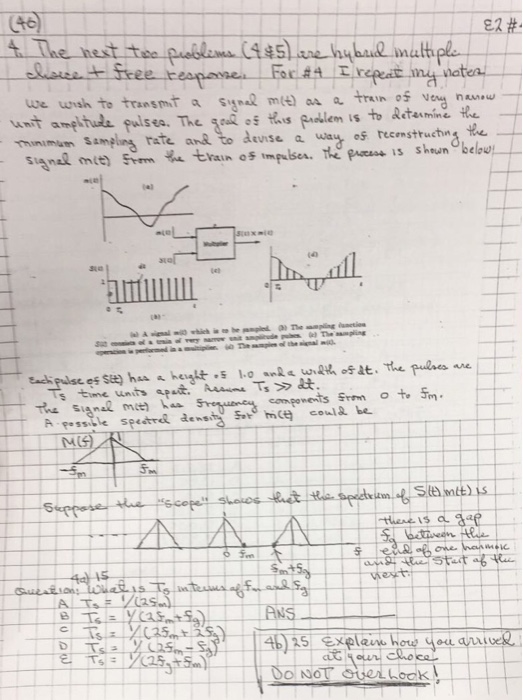 (46)
E2 #
4. The next two problems (4 & 5) are hybrid multiple
choice + free response. For #4 I repeat my notes
We wish to transmit a signal m(t) as a train of very narrow
unit amplitude pulses. The goal of this problem is to determine the
minimum sampling rate and to devise a way of reconstructing the
signal m(t) from the train of impulses. The process is shown below:
m(t)
(a)
m(t)
S(t)
Multiplier
S(t) x m(t)
(c)
S(t)
dt
(d)
1
0 Ts
t
(b)
0 Ts
(a) A signal m(t) which is to be sampled. (b) The sampling function
S(t) consists of a train of very narrow unit amplitude pulses. (c) The sampling
operation is performed in a multiplier. (d) The samples of the signal m(t).
Each pulse of S(t) has a height of 1.0 and a width of dt. The pulses are
Ts time units apart. Assume Ts >> dt.
The signal m(t) has frequency components from 0 to fm.
A possible spectral density for m(t) could be
M(f)
-fm
fm
Suppose the "scope" shows that the spectrum of S(t) m(t) is
0 fm
fm+fg
f
there is a gap
fg between the
end of one harmonic
and the start of the
next.
4a) 15
Question: What is Ts in terms of fm and fg
A Ts = 1/(2fm)
B Ts = 1/(2fm+fg)
C Ts = 1/(2fm+2fg)
D Ts = 1/(2fm-fg)
E Ts = 1/(2fg+fm)
ANS
4b) 25 Explain how you arrived
at your choice
DO NOT OverLook!